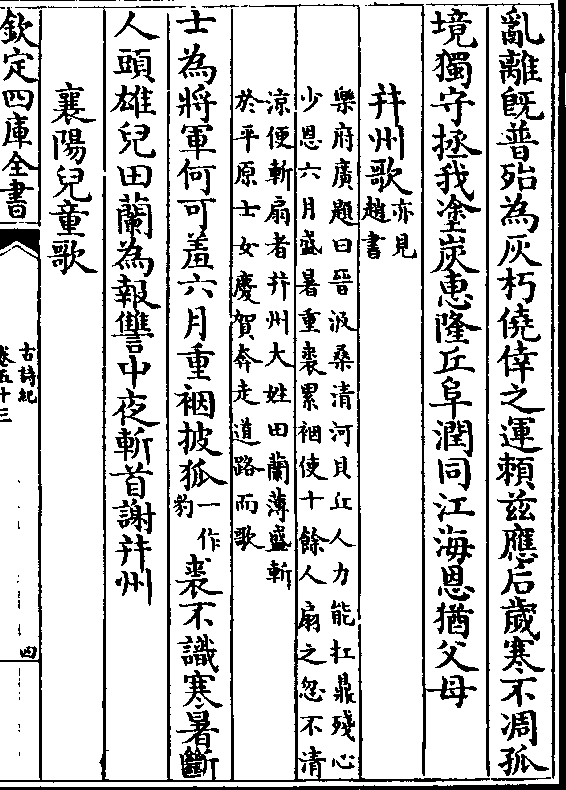 亂離旣普殆為灰朽僥倖之運賴兹應后歳寒不凋孤
境獨守拯我塗炭惠隆丘阜潤同江海恩猶父母
幷州歌亦見趙書
樂府廣題曰晉汲桑清河貝丘人力能扛鼎殘心
少恩六月盛暑重裘累裀使十餘人扇之忽不清
凉便斬扇者幷州大姓田蘭薄盛斬
於平原士女慶賀奔走道路而歌
士為將軍何可羞六月重裀披狐一作豹裘不識寒暑斷
人頭雄兒田蘭為報讐中夜斬首謝幷州
襄陽兒童歌
欽定四庫全書
古詩紀
卷五十三
四